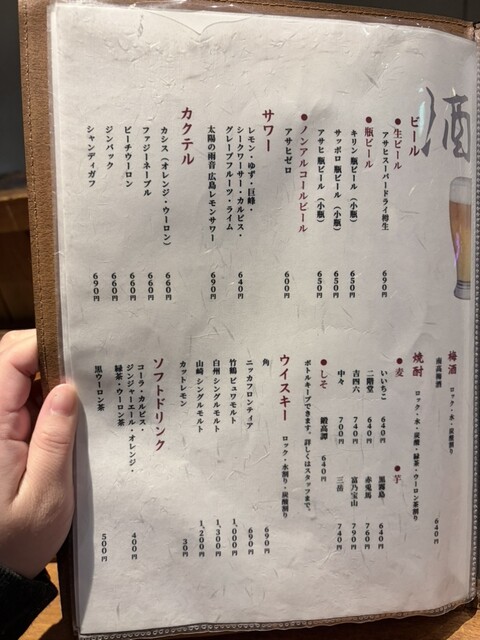 酒
ビール
●生ビール
アサヒスーパードライ樽生 690円
●瓶ビール
キリン 瓶ビール（小瓶） 650円
サッポロ 瓶ビール（小瓶） 650円
アサヒ 瓶ビール（小瓶） 650円
●ノンアルコールビール
アサヒゼロ 600円
サワー
レモン・ゆず・巨峰・
シークワーサー・カルピス・
グレープフルーツ・ライム 640円
太陽の雨音 広島レモンサワー 690円
カクテル
カシス（オレンジ・ウーロン） 660円
ファジーネーブル 660円
ピーチウーロン 660円
ジンバック 660円
シャンディガフ 690円
梅酒 ロック・水・炭酸割り
南高梅酒 640円
焼酎 ロック・水・炭酸・緑茶・ウーロン茶割り
●麦
いいちこ 640円
二階堂 640円
吉四六 740円
中々 700円
●芋
黒霧島 640円
赤兎馬 760円
富乃宝山 790円
三岳 740円
●しそ
鍛高譚 640円
ボトルキープできます。詳しくはスタッフまで。
ウイスキー ロック・水割り・炭酸割り
角 690円
ニッカフロンティア 690円
竹鶴 ピュワモルト 1,000円
白州 シングルモルト 1,300円
山崎 シングルモルト 1,200円
カットレモン 30円
ソフトドリンク
コーラ・カルピス・
ジンジャーエール・オレンジ・
緑茶・ウーロン茶 400円
黒ウーロン茶 500円